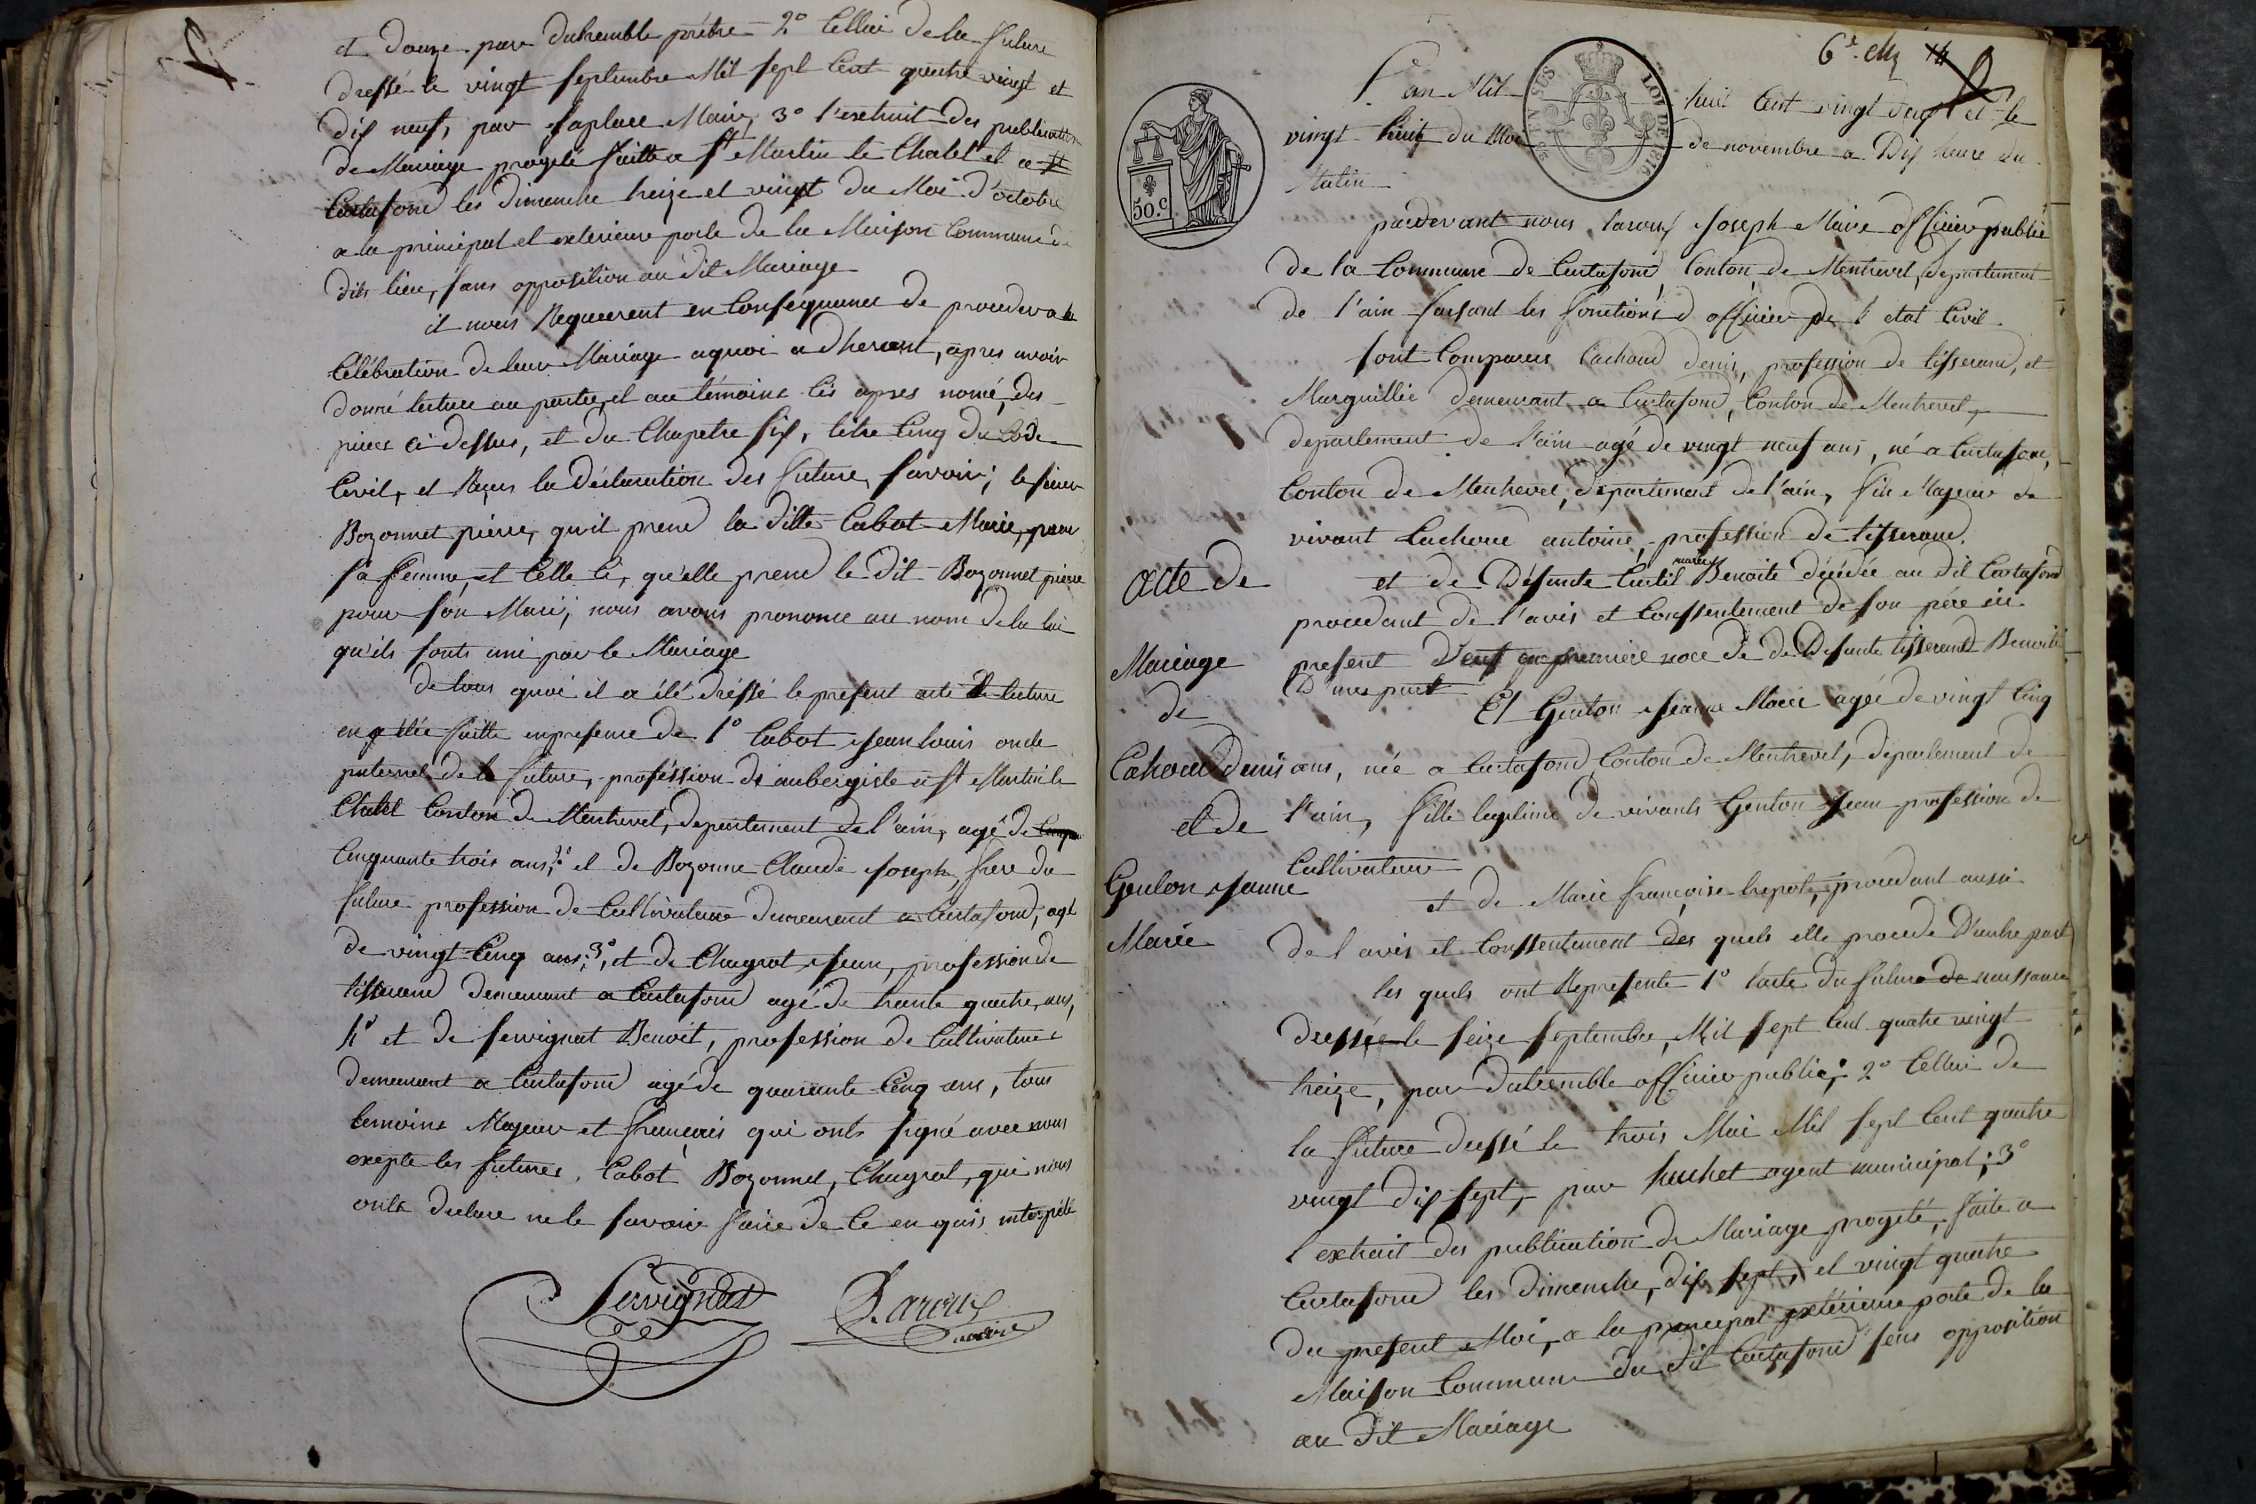 et douze par dutremble prètre 2° Celluie de la future
dressé le vingt septembre Mil sept Cent quatre vingt et
dix neuf, par Laplace Maire, 3° l'extrait des publication
de Mariage progeté faitte a St Martin le Chatel et a
Curtafond les dimenche treize et vingt du Moi d'octobre
a la principal et exterieure porte de la Maison Commune
dits lieu, sans opposition au dit Mariage
il nous Requerent en Consequance de proceder a la
Célébration de leur Mariage aquoi adherant, apres avoir
donné lecture au partie, et au témoins Cis apres nomé, des
pieces Ci dessus, et du Chapitre six, titre Cinq du Code
Civil, et Reçus la déclaration des future, savoir; le sieur
Bozonnet pierre, qu'il prend la ditte Cabot Marie, pour
sa femme, et Celle Ci, qu'elle prend le dit Bozonnet pierre
pour son Mari; nous avons prononcé au nom de la loi
qu'ils sonts uni par le Mariage
de tous quoi il a été dréssé le present acte lecture
en été faitte enpresence de 1° Cabot Jean louis oncle
paternel de la future, proféssion d'aubergiste a St Martin le
Chatel Conton de Montrevel, departement de l'ain, agé de
Cinquante trois ans, 2° et de Bozonne Claude Joseph, frere du
future profession de Cultivateure demeurent a Curtafond, agé
de vingt Cinq ans; 3°, et de Chagrot Jean, profession de
tisserand demeurant a Curtafond agé de trante quatre ans,
4° et de Servignat Benoit, profession de Cultivateure
demeurant a Curtafond agé de quarante Cinq ans, tous
temoins Majeur et français qui onts signé avec nous
exepte les futures, Cabot Bozonnet, Chagrot, qui nous
onts declare ne le savoir faire de Ce en quis interpélé
Servignat Laroux
maire
6e
L'an Mil huit Cent vingt deux et le
vingt huit du Moi de novembre a Dix heure du
Matin
pardevant nous, laroux Joseph Maire officier public
de la Commune de Curtafond, Conton de Montrevel, departement
de l'ain faisant les fonctions d officier de l etat Civil
sont Comparus Cachoud denis, profession de tisserand, et
Marguillié demeurant a Curtafond, Conton de Montrevel,
departement de l'ain agé de vingt neuf ans, né a Curtafond,
Conton de Montrevel, departement de l'ain, fils Majeur de
vivant Cachoud antoine, profession de tisserand.
et de Défunte Curtil marie Benoite décédée au dit Curtafond
procedant de l'avis et Conssentement de son père ici
present Veuf en premiere noce de de Defunte tisserand Benoite
D'unes part
Et Genton Jeanne Marie agée de vingt Cinq
ans, née a Curtafond Conton de Montrevel, departement de
l'ain, fille legitime de vivants Genton Jean profession de
Cultivateur
et de Marie françoise trepot, procedant aussi
de l'avis et Conssentement des quels elle procede D'autre part
les quels ont Represente 1° l'acte du future de naissance
dressée le seize septembre, Mil sept Cent quatre vingt
treize, par Dutremble officier public; 2° Cellui de
la future dressé le trois Mai Mil sept Cent quatre
vingt dix sept, par huchet agent municipal; 3°
l'extrait des publication de Mariage progété, faite a
Curtafond les dimenche, dix sept, et vingt quatre
du present Moi, a la principal extérieure porte de la
Maison Commune du dit Curtafond sens opposition
au dit Mariage
acte de
Mariage
de
Cahoud denis
et de
Genton Jeanne
Marie
50.c
LOI DE 1816